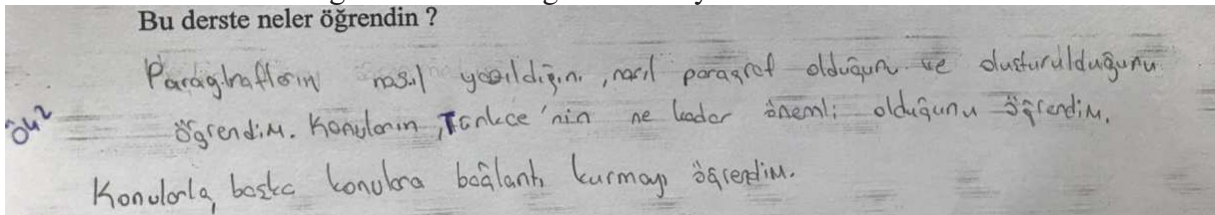 Bu derste neler öğrendin ?
Paragrafların nasıl yazıldığını, nasıl paragraf olduğunu ve oluşturulduğunu
Ök2
öğrendim. Konuların, Türkçe'nin ne kadar önemli olduğunu öğrendim.
Konularla başka konulara bağlantı kurmayı öğrendim.